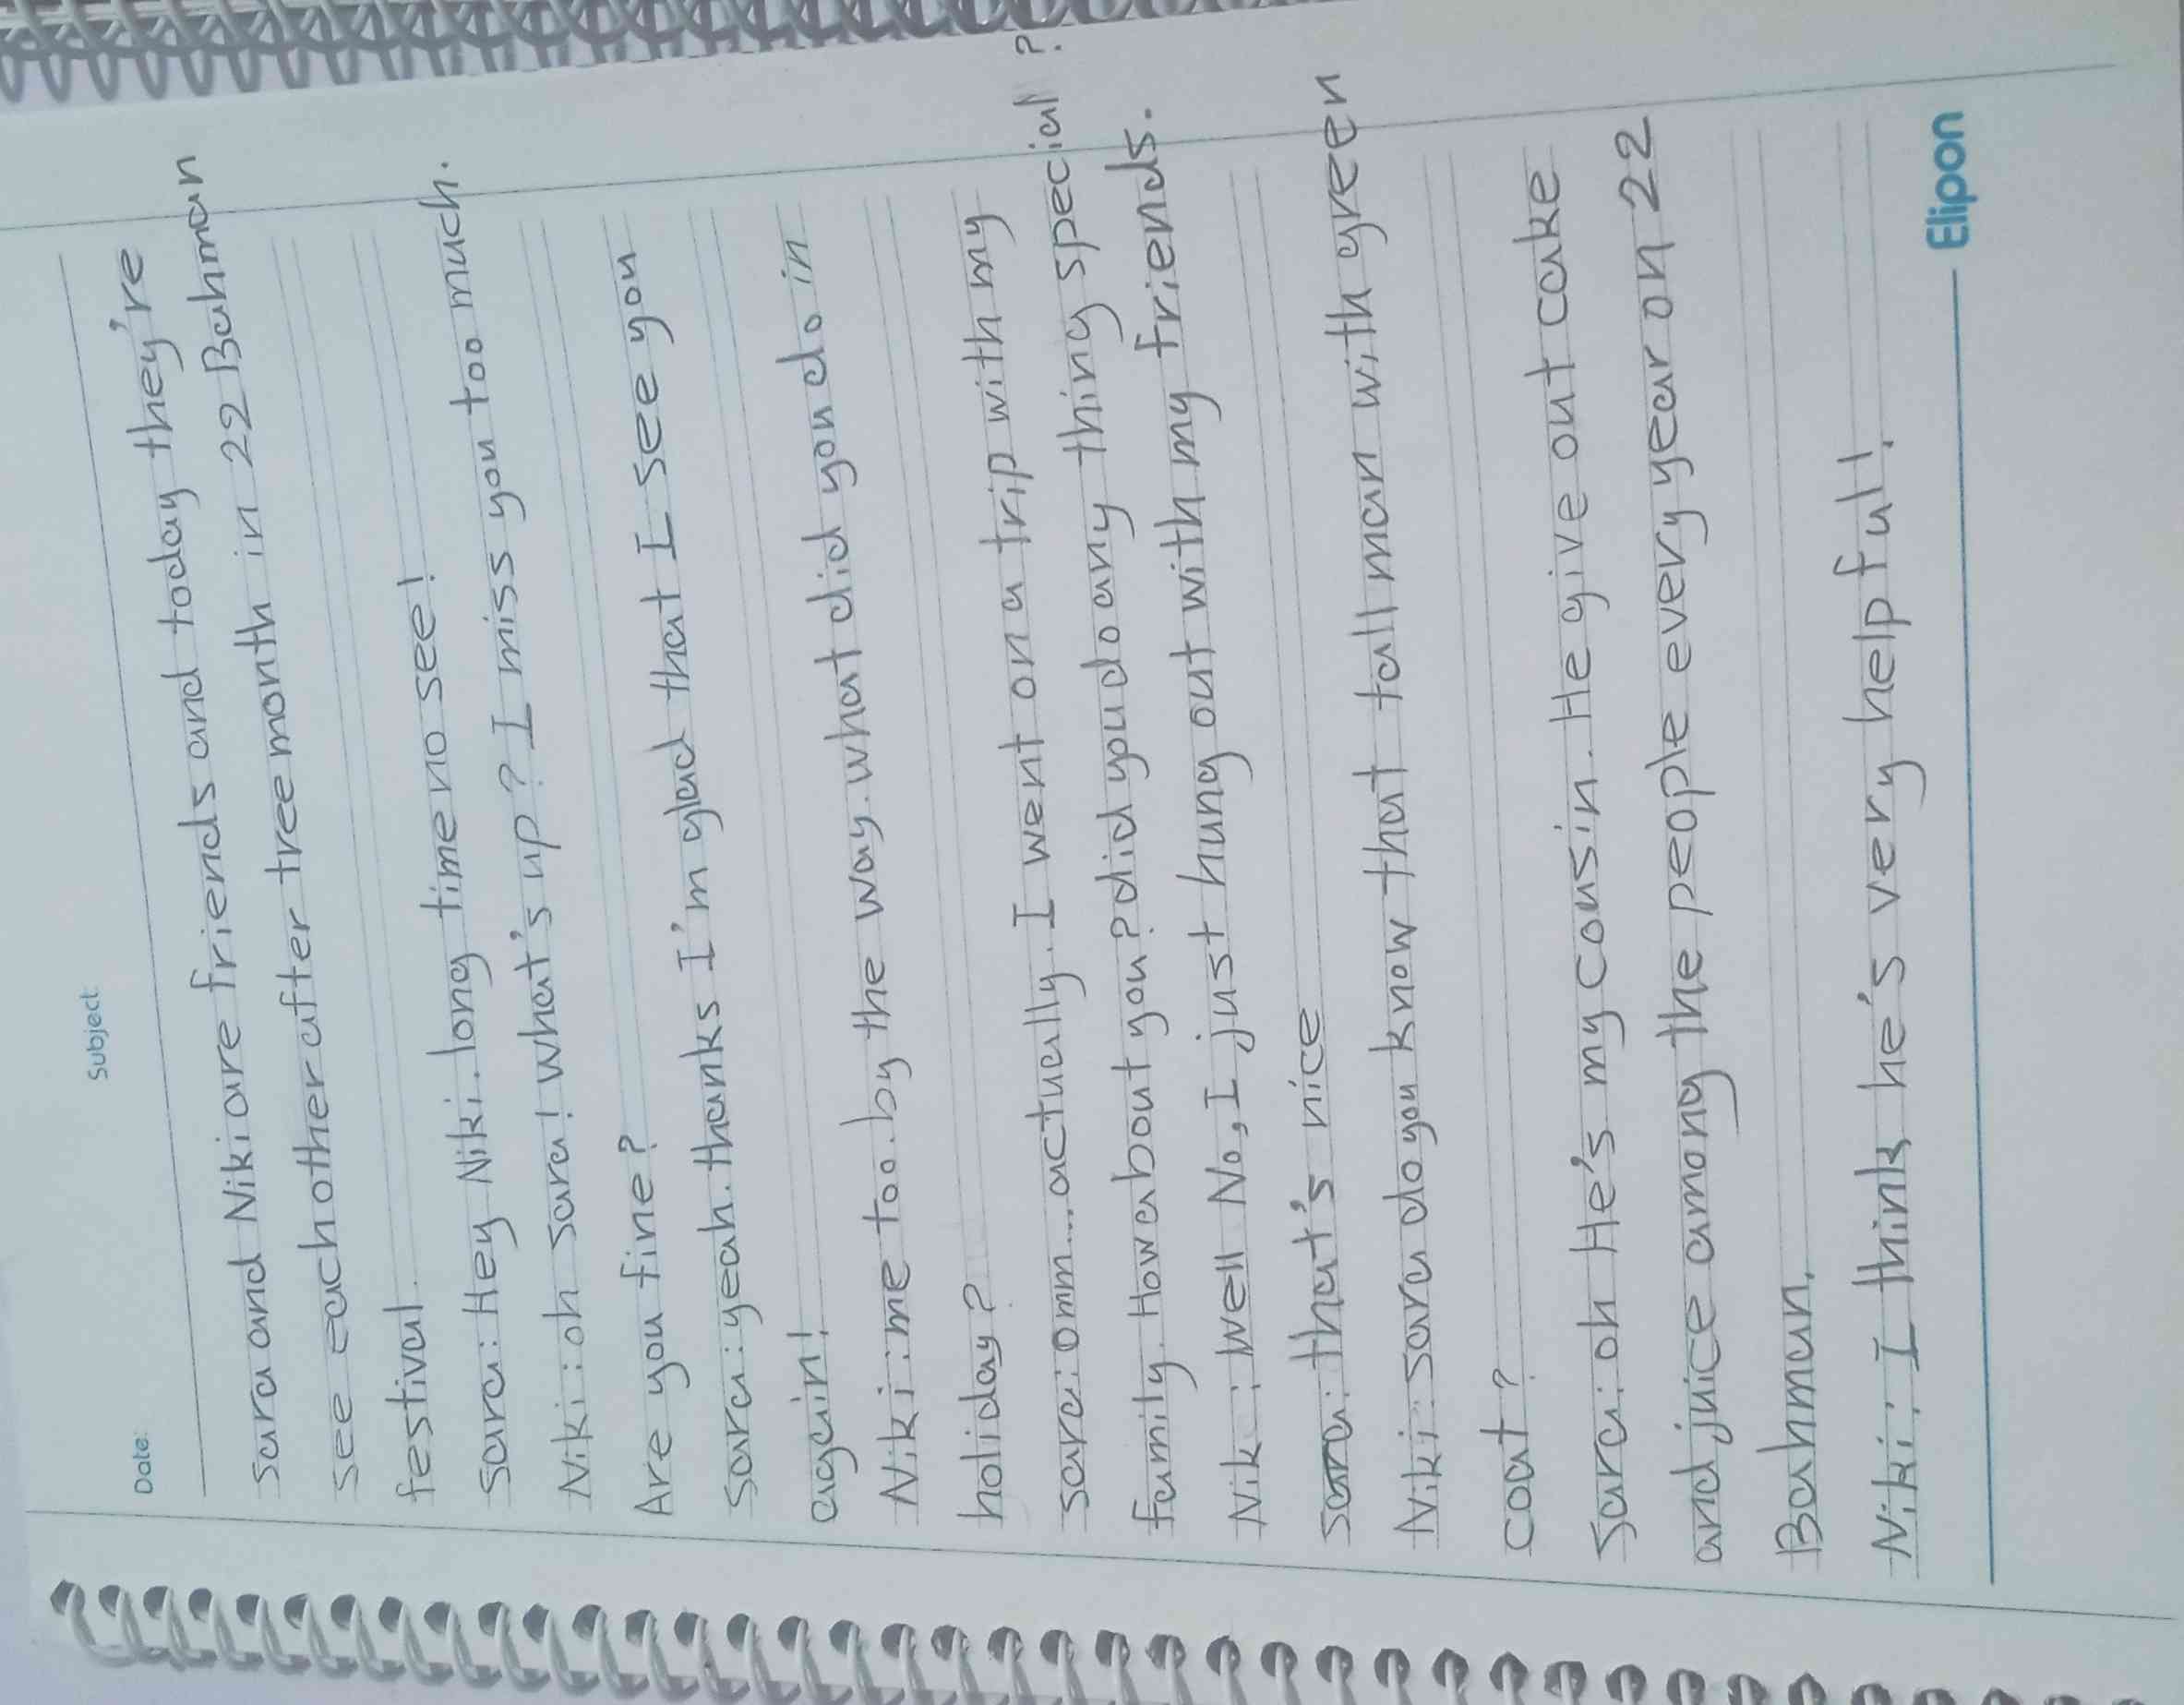 Date:
Subject:
Sara and Niki are friends and today they're
see each other after tree month in 22 Bahman
festival.
Sara: Hey Niki. long time no see!
Niki: oh Sara! what's up? I miss you too much.
Are you fine?
Sara: yeah. thanks I'm glad that I see you
again!
Niki: me too. by the way. what did you do in
holiday?
Sara: Omm... actually. I went on a trip with my
family. How about you? did you do any thing special?
Nik: Well No, I just hung out with my friends.
Sara: that's nice
Niki: Sara do you know that tall man with green
coat?
Sara: oh He's my cousin. He give out cake
and juice among the people every year on 22
Bahman.
Niki: I think he's very help full!
Elipon